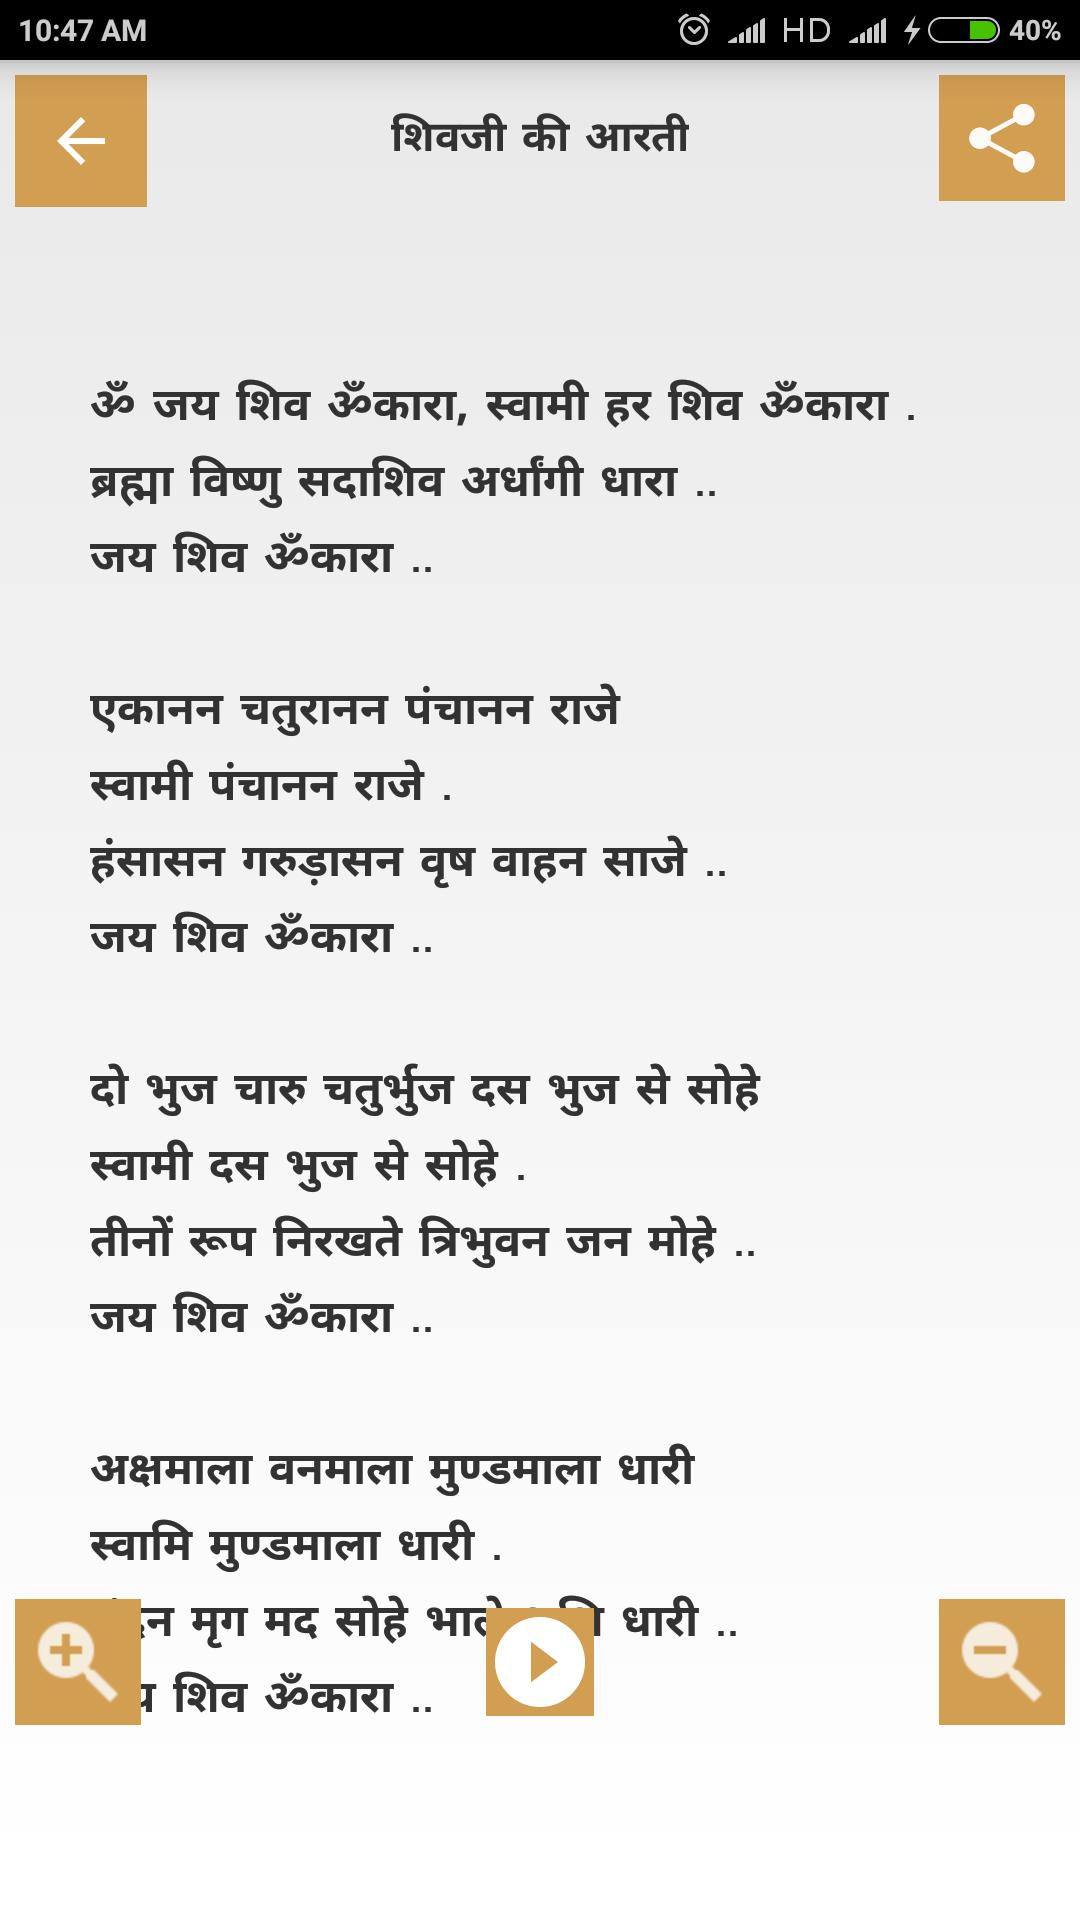 10:47 AM HD 40%
शिवजी की आरती
ॐ जय शिव ॐकारा, स्वामी हर शिव ॐकारा .
ब्रह्मा विष्णु सदाशिव अर्धांगी धारा ..
जय शिव ॐकारा ..
एकानन चतुरानन पंचानन राजे
स्वामी पंचानन राजे .
हंसासन गरुड़ासन वृष वाहन साजे ..
जय शिव ॐकारा ..
दो भुज चारु चतुर्भुज दस भुज से सोहे
स्वामी दस भुज से सोहे .
तीनों रूप निरखते त्रिभुवन जन मोहे ..
जय शिव ॐकारा ..
अक्षमाला वनमाला मुण्डमाला धारी
स्वामि मुण्डमाला धारी .
मृग मद सोहे धारी ..
शिव ॐकारा ..